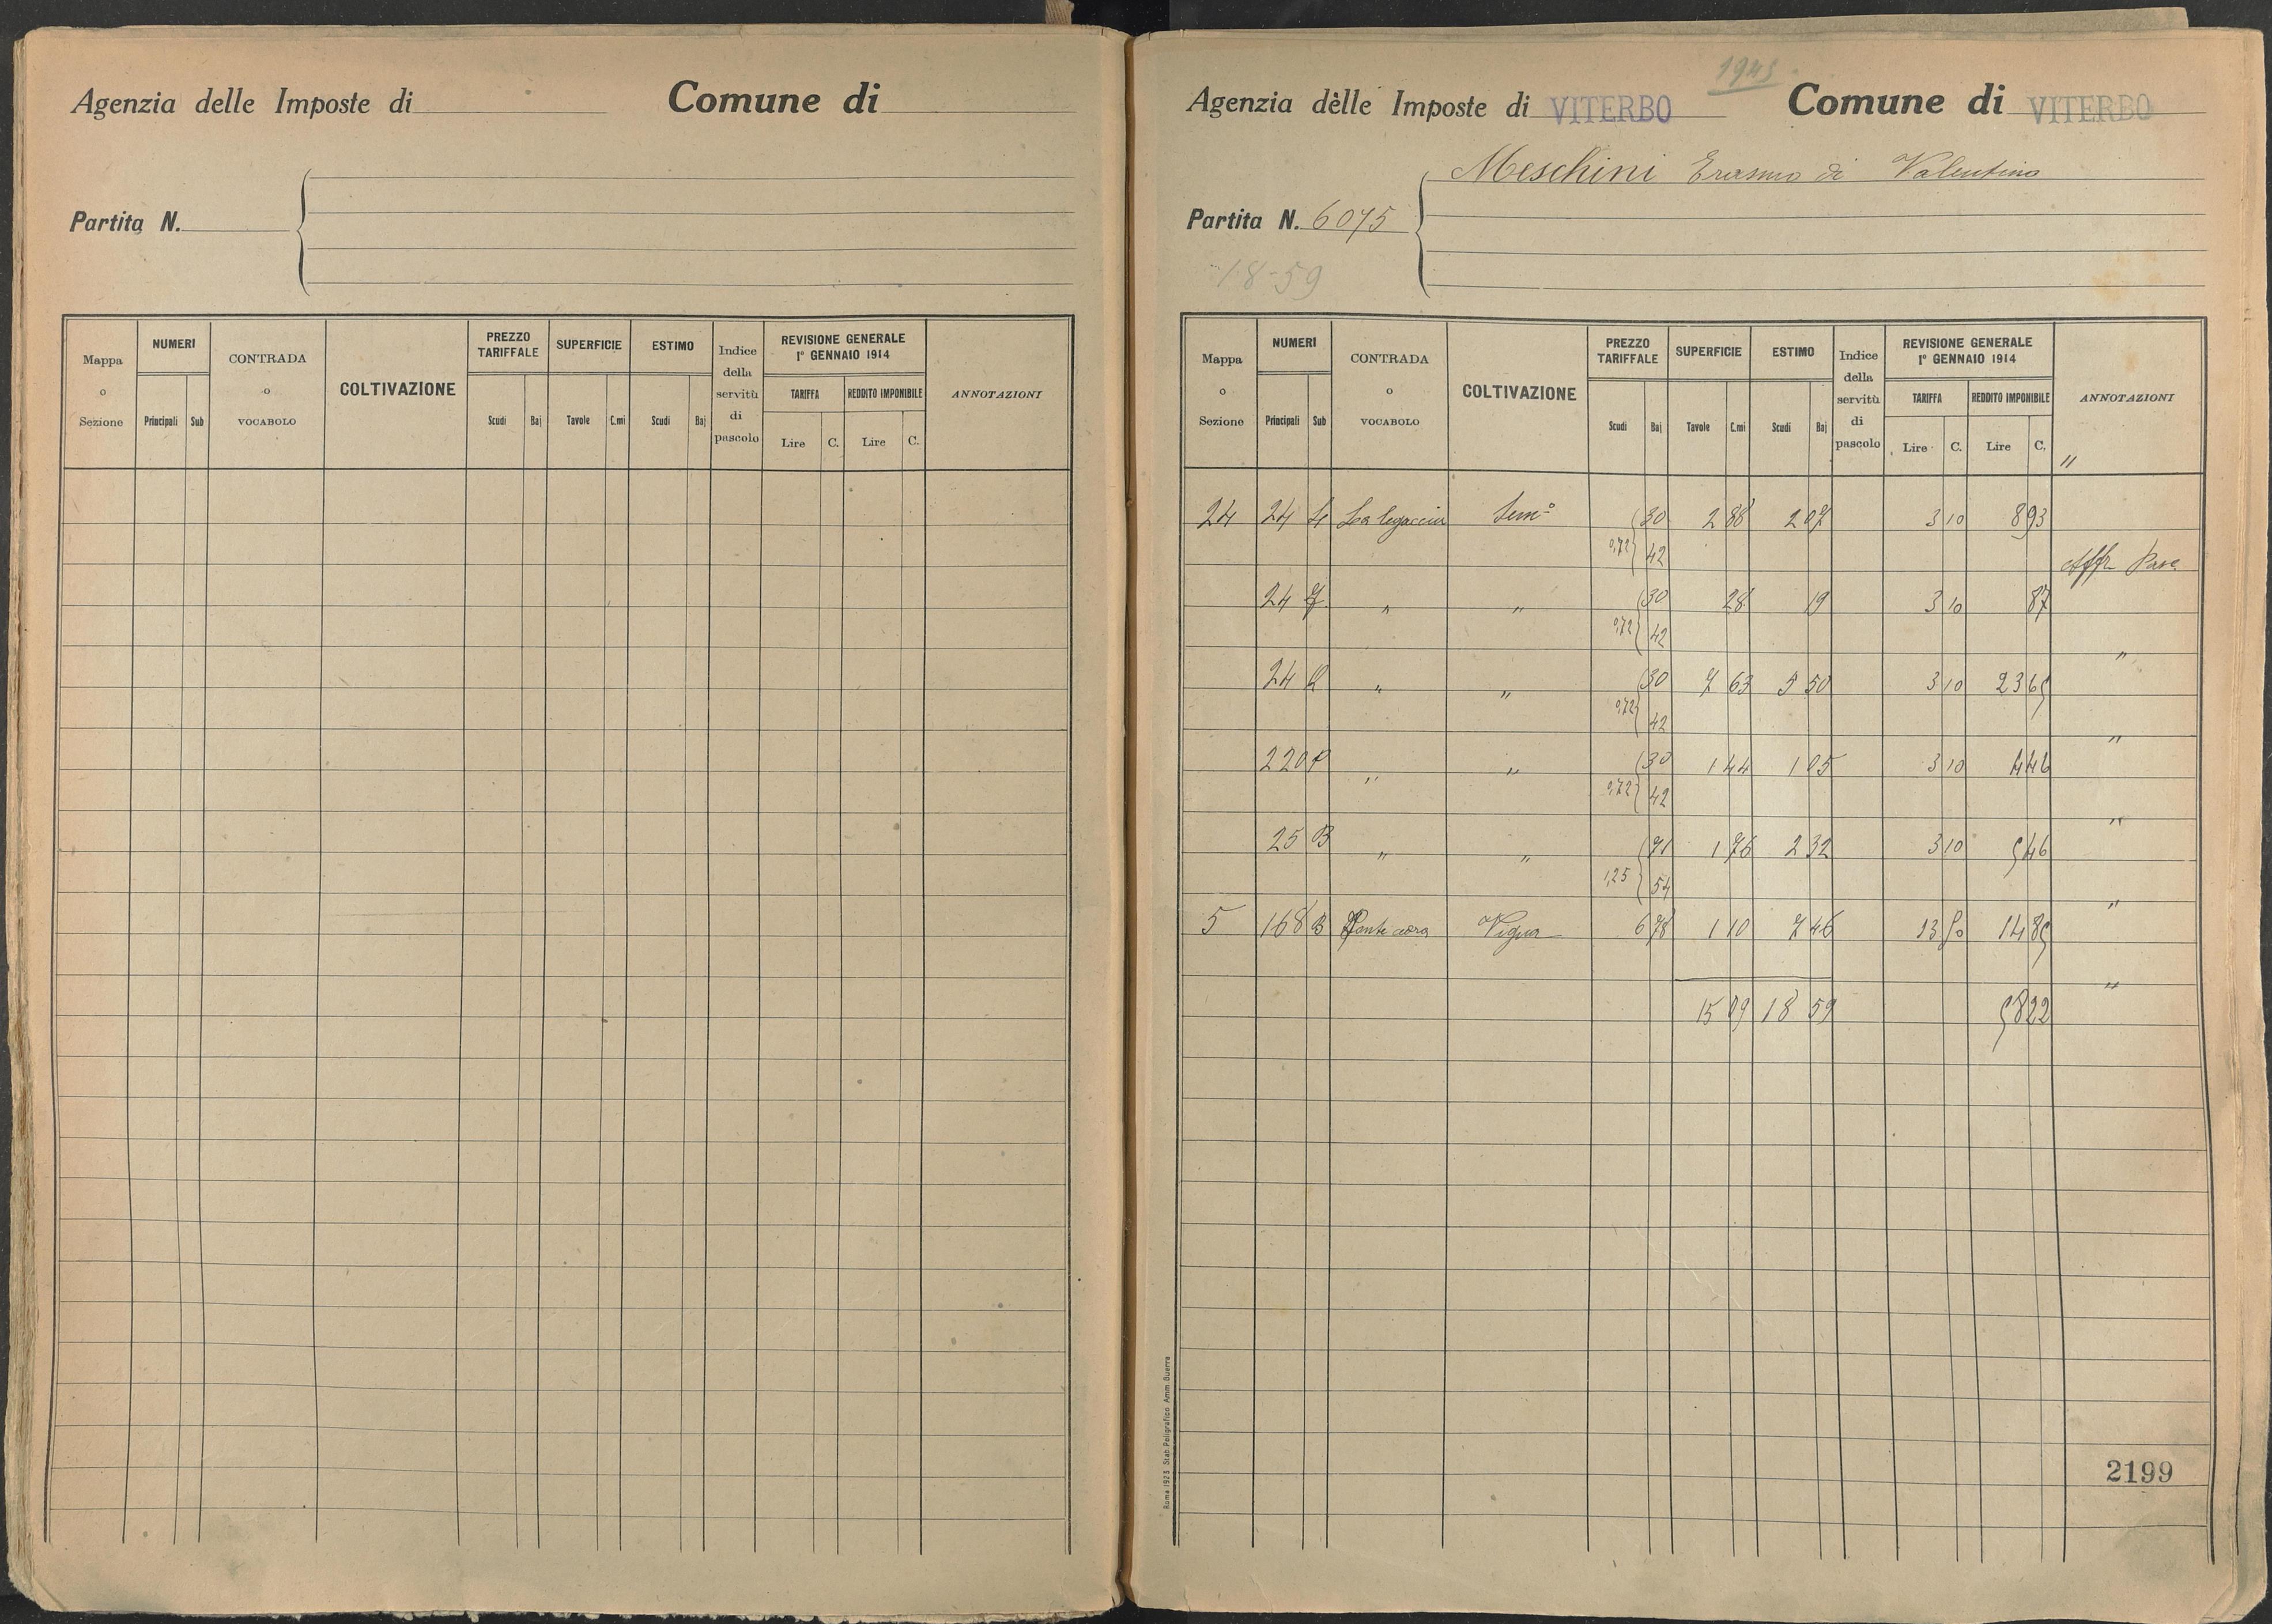 Agenzia delle Imposte di Comune di
Partita N.
Mappa o Sezione NUMERI Principali Sub CONTRADA o VOCABOLO COLTIVAZIONE PREZZO TARIFFALE Scudi Baj SUPERFICIE Tavole C.mi ESTIMO Scudi Baj Indice della servitù di pascolo REVISIONE GENERALE 1° GENNAIO 1914 TARIFFA Lire C. REDDITO IMPONIBILE Lire C. ANNOTAZIONI
1945
Agenzia delle Imposte di VITERBO Comune di VITERBO
Meschini Erasmo di Valentino
Partita N. 6075
18-59
Mappa o Sezione NUMERI Principali Sub CONTRADA o VOCABOLO COLTIVAZIONE PREZZO TARIFFALE Scudi Baj SUPERFICIE Tavole C.mi ESTIMO Scudi Baj Indice della servitù di pascolo REVISIONE GENERALE 1° GENNAIO 1914 TARIFFA Lire C. REDDITO IMPONIBILE Lire C. ANNOTAZIONI
"
24 24 La legaccia Sem° 30 2 88 2 07 3 10 8 93
0,72 42 Affr Pasc
24 " " 30 28 19 3 10 87
0,72 42 "
24 " " 30 7 63 5 50 3 10 23 65
0,72 42 "
220 P " " 30 1 44 1 05 3 10 4 46
0,72 42 "
25 B " " 71 1 76 2 32 3 10 5 46
1,25 54 "
5 168 B Vigna 6 78 1 10 7 46 13 50 14 85
"
15 09 18 59 58 22
2199
Roma 1925 Stab. Poligrafico Amm. Guerra